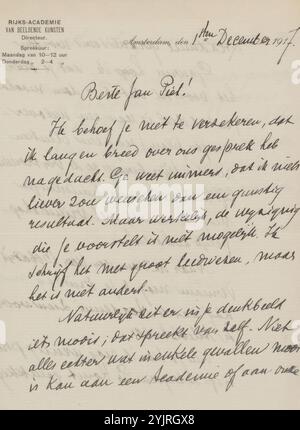 RIJKS-ACADEMIE
VAN BEELDENDE KUNSTEN
Directeur.
Spreekuur:
Maandag van 10—12 uur
Donderdag „ 2—4 „
Amsterdam, den 1sten December 1917
Beste Jan Piet!
Ik behoef je niet te verzekeren, dat
ik lang en breed over ons gesprek heb
nagedacht. Ge weet immers, dat ik niets
liever zou wenschen dan een gunstig
resultaat. Maar werkelijk, de wijziging
die je voorstelt is niet mogelijk. Ik
schrijf het met groot leedwezen, maar
het is niet anders.
Natuurlijk zit er in je denkbeeld
iets moois; dat spreekt van zelf. Niet
alles echter wat in enkele gevallen moois
is kan aan een Academie of aan onze
alamy
Image ID: 2YJRGX8
www.alamy.com